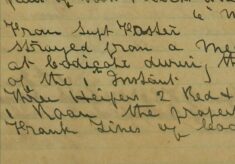 From Supt Foster
Strayed from a
at Bodigate during th
of the 1st Instant
Three Heifers 2 Red &
1 Roan, the proper
Frank Lines of